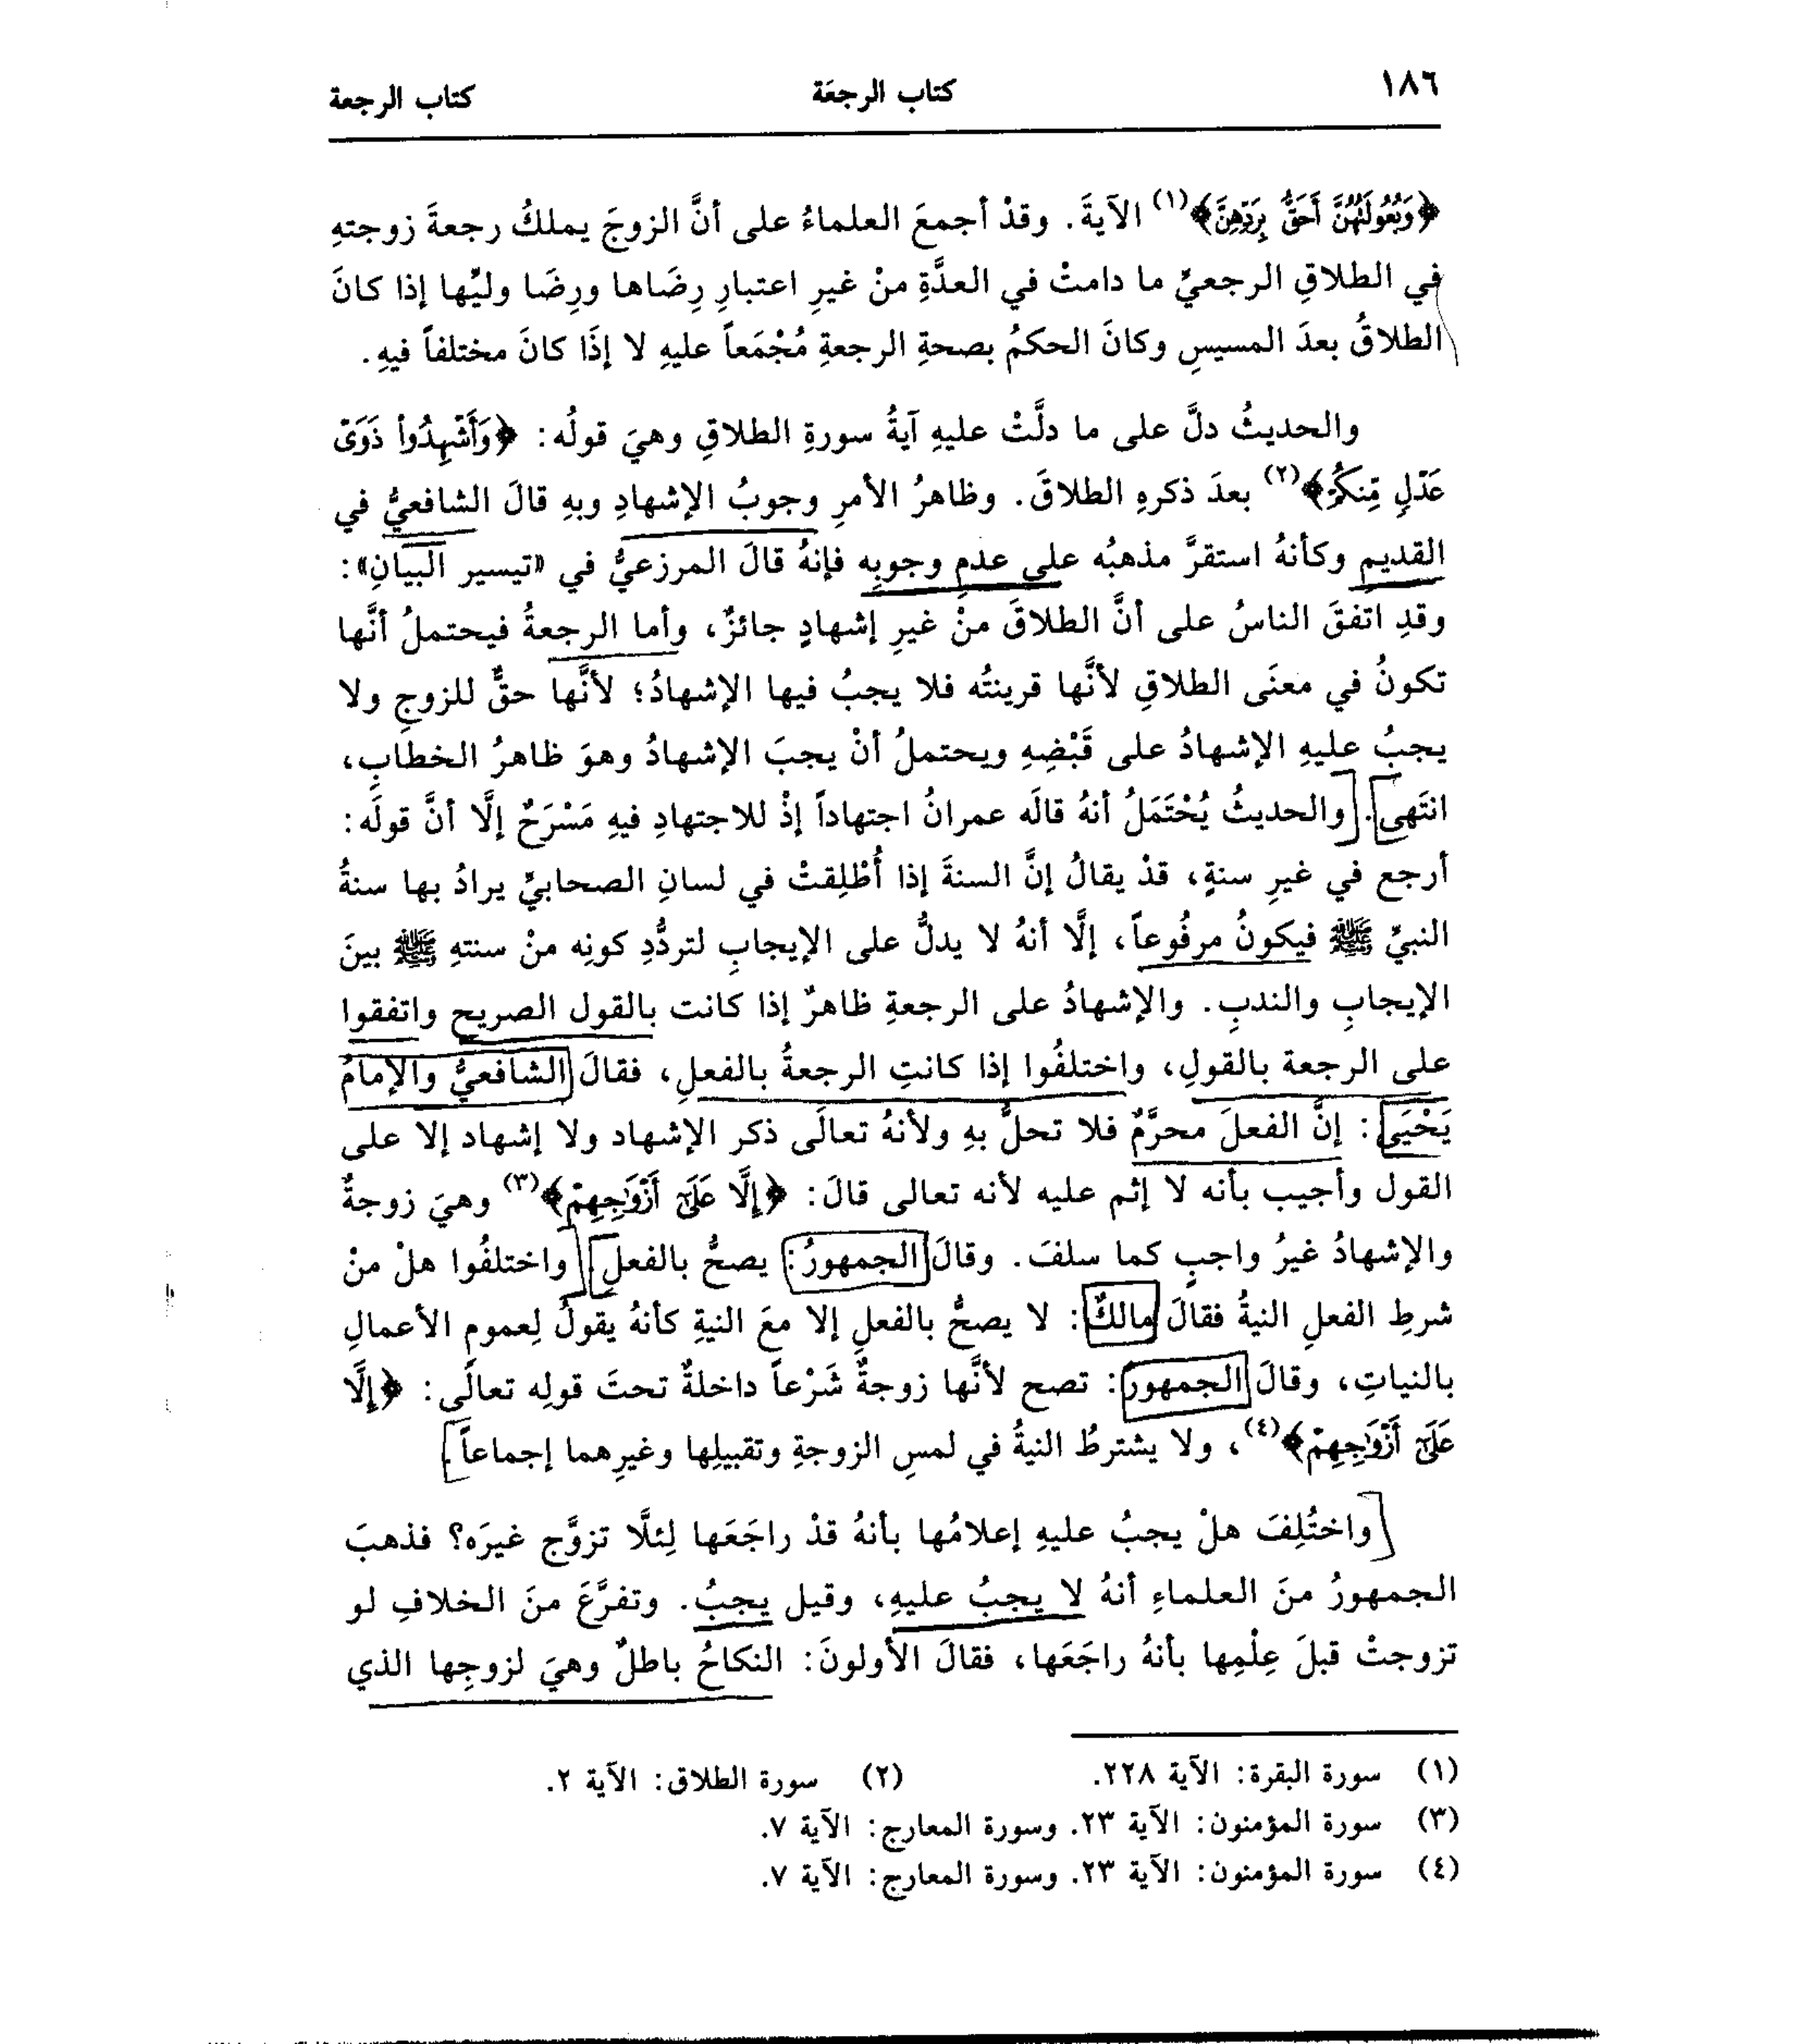 ١٨٦ كتاب الرجعَة كتاب الرجعة
﴿وَبُعُولَتُهُنَّ أَحَقُّ بِرَدِّهِنَّ﴾(١) الآيةَ. وقدْ أجمعَ العلماءُ على أنَّ الزوجَ يملكُ رجعةَ زوجتهِ
في الطلاقِ الرجعيِّ ما دامتْ في العدَّةِ منْ غيرِ اعتبارِ رِضَاها ورِضَا وليِّها إذا كانَ
الطلاقُ بعدَ المسيسِ وكانَ الحكمُ بصحةِ الرجعةِ مُجْمَعاً عليهِ لا إذَا كانَ مختلفاً فيهِ.
والحديثُ دلَّ على ما دلَّتْ عليهِ آيةُ سورةِ الطلاقِ وهيَ قولُه: ﴿وَأَشْهِدُوا ذَوَىْ
عَدْلٍ مِّنكُمْ﴾(٢) بعدَ ذكرهِ الطلاقَ. وظاهرُ الأمرِ وجوبُ الإشهادِ وبهِ قالَ الشافعيُّ في
القديمِ وكأنهُ استقرَّ مذهبُه على عدمِ وجوبِه فإنهُ قالَ المرزعيُّ في «تيسير البيانِ»:
وقدِ اتفقَ الناسُ على أنَّ الطلاقَ منْ غيرِ إشهادٍ جائزٌ، وأما الرجعةُ فيحتملُ أنَّها
تكونُ في معنَى الطلاقِ لأنَّها قرينتُه فلا يجبُ فيها الإشهادُ؛ لأنَّها حقٌّ للزوجِ ولا
يجبُ عليهِ الإشهادُ على قَبْضِهِ ويحتملُ أنْ يجبَ الإشهادُ وهوَ ظاهرُ الخطابِ،
انتَهى. والحديثُ يُحْتَمَلُ أنهُ قالَه عمرانُ اجتهاداً إذْ للاجتهادِ فيهِ مَسْرَحٌ إلَّا أنَّ قولَه:
أرجع في غيرِ سنةٍ، قدْ يقالُ إنَّ السنةَ إذا أُطْلِقتْ في لسانِ الصحابيِّ يرادُ بها سنةُ
النبيِّ ﷺ فيكونُ مرفُوعاً، إلَّا أنهُ لا يدلُّ على الإيجابِ لتردُّدِ كونِه منْ سنتهِ ﷺ بينَ
الإيجابِ والندبِ. والإشهادُ على الرجعةِ ظاهرٌ إذا كانت بالقول الصريح واتفقوا
على الرجعة بالقولِ، واختلفُوا إذا كانتِ الرجعةُ بالفعلِ، فقالَ الشافعيُّ والإمامُ
يَحْيَى: إنَّ الفعلَ محرَّمٌ فلا تحلُّ بهِ ولأنهُ تعالَى ذكر الإشهاد ولا إشهاد إلا على
القول وأجيب بأنه لا إثم عليه لأنه تعالى قالَ: ﴿إِلَّا عَلَىٰٓ أَزْوَٰجِهِمْ﴾(٣) وهيَ زوجةٌ
والإشهادُ غيرُ واجبٍ كما سلفَ. وقالَ الجمهورُ: يصحُّ بالفعلِ. واختلفُوا هلْ منْ
شرطِ الفعلِ النيةُ فقالَ مالكٌ: لا يصحُّ بالفعلِ إلا معَ النيةِ كأنهُ يقولُ لِعمومِ الأعمالِ
بالنياتِ، وقالَ الجمهورُ: تصح لأنَّها زوجةٌ شَرْعاً داخلةٌ تحتَ قولِه تعالَى: ﴿إِلَّا
عَلَىٰٓ أَزْوَٰجِهِمْ﴾(٤)، ولا يشترطُ النيةُ في لمسِ الزوجةِ وتقبيلِها وغيرِهما إجماعاً.
واختُلِفَ هلْ يجبُ عليهِ إعلامُها بأنهُ قدْ راجَعَها لِئلَّا تزوَّج غيرَه؟ فذهبَ
الجمهورُ منَ العلماءِ أنهُ لا يجبُ عليهِ، وقيل يجبُ. وتفرَّعَ منَ الخلافِ لو
تزوجتْ قبلَ عِلْمِها بأنهُ راجَعَها، فقالَ الأولونَ: النكاحُ باطلٌ وهيَ لزوجِها الذي
(١) سورة البقرة: الآية ٢٢٨. (٢) سورة الطلاق: الآية ٢.
(٣) سورة المؤمنون: الآية ٢٣. وسورة المعارج: الآية ٧.
(٤) سورة المؤمنون: الآية ٢٣. وسورة المعارج: الآية ٧.